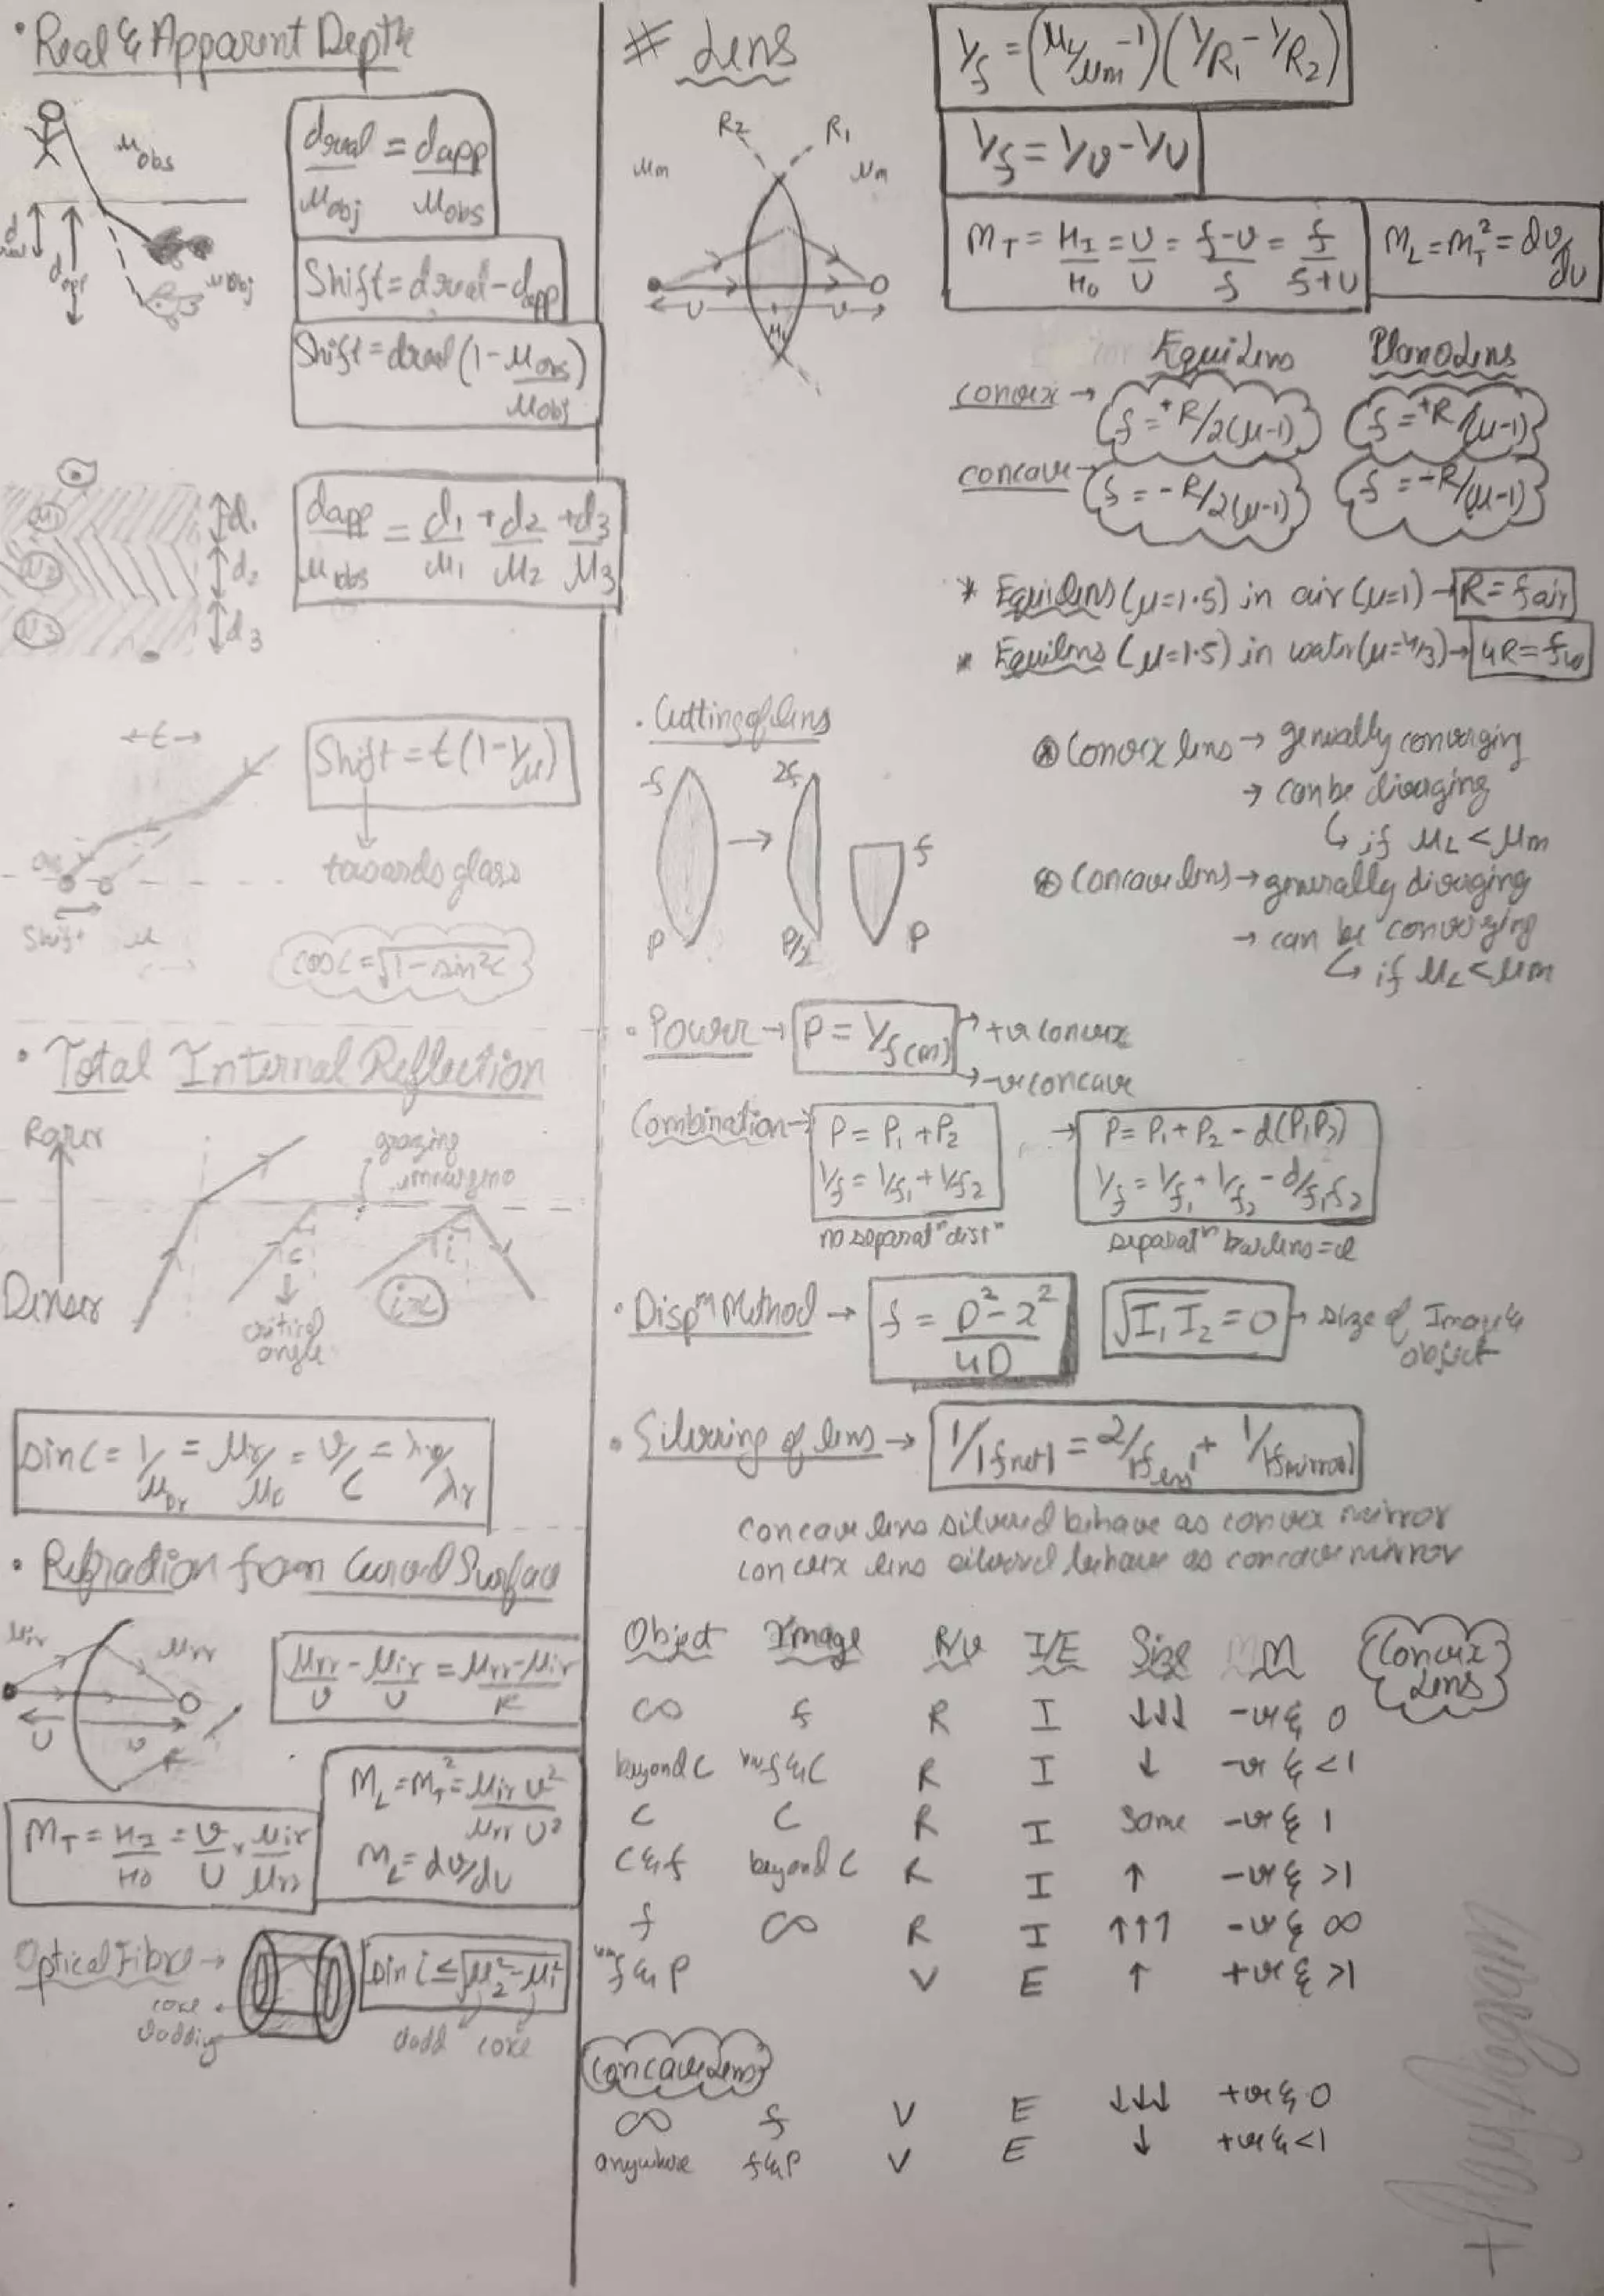 • Real & Apparent Depth
μobs
d real
dapp
μobj
dreal/μobj = dapp/μobs
Shift = dreal - dapp
Shift = dreal (1 - μobs/μobj)
μ1
μ2
μ3
d1
d2
d3
dapp/μobs = d1/μ1 + d2/μ2 + d3/μ3
←t→
Shift
μ
Shift = t (1 - 1/μ)
towards glass
cosc = √1 - sin²c
• Total Internal Reflection
Rarer
Denser
grazing
c
critical
angle
i
sinc = 1/μDr = μr/μD = v/c
• Refraction from Curved Surface
μir
μrr
U
v
R
μrr/v - μir/U = μrr - μir/R
MT = HI/HO = v/U × μir/μrr
ML = MT² = μir v²/μrr U²
ML = dv/dU
Optical Fibre →
core
cladding
sin i ≤ √μ2² - μ1²
cladd core
# Lens
R2
R1
μm
μm
U
v
μL
1/f = (μL/μm - 1) (1/R1 - 1/R2)
1/f = 1/v - 1/U
MT = HI/HO = v/U = f-v/f = f/f+U
ML = MT² = dv/dU
Equilens
Planolens
convex → f = +R/2(μ-1) f = +R/(μ-1)
concave → f = -R/2(μ-1) f = -R/(μ-1)
* Equilens (μ=1.5) in air (μ=1) → R = fair
* Equilens (μ=1.5) in water (μ=4/3) → 4R = fw
• Cutting of lens
f
P
2f
P/2
f
P
⊛ Convex lens → generally converging
→ can be diverging
↳ if μL < μm
⊛ Concave lens → generally diverging
→ can be converging
↳ if μL < μm
• Power → P = 1/f(m) → +ve convex
→ -ve concave
Combination → P = P1 + P2 → P = P1 + P2 - d(P1P2)
1/f = 1/f1 + 1/f2 1/f = 1/f1 + 1/f2 - d/f1f2
no separatⁿ dist separatⁿ b/w lens = d
• Dispᵐ Method → f = D² - x²/4D √I1 I2 = O → size of Image &
object
• Silvering of lens → 1/|fnet| = 2/|flens| + 1/|fmirror|
concave lens silvered behave as convex mirror
convex lens silvered behave as concave mirror
Object Image R/V I/E Size M
Convex
Lens
∞ f R I ↓↓↓ -ve & 0
beyond C b/w f & C R I ↓ -ve & <1
C C R I Same -ve & 1
C & f beyond C R I ↑ -ve & >1
f ∞ R I ↑↑↑ -ve & ∞
f & P V E ↑ +ve & >1
Concave Lens
∞ f V E ↓↓↓ +ve & 0
anywhere f & P V E ↓ +ve & <1